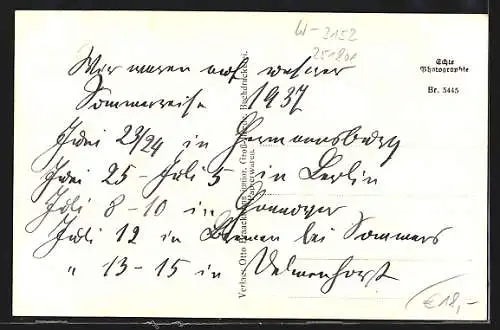 W-3152
251801
Wir waren auf unserer
Sommerreise 1937
Juni 23/24 in Hermannsburg
Juni 25 - Juli 5 in Berlin
Juli 8-10 in Hannover
Juli 12 in Bremen bei Sommers
" 13-15 in Delmenhorst
Echte
Photographie
Br. 5445
Verlag: Otto junior, Buchdruckerei.
Papierwaren.
€18,-